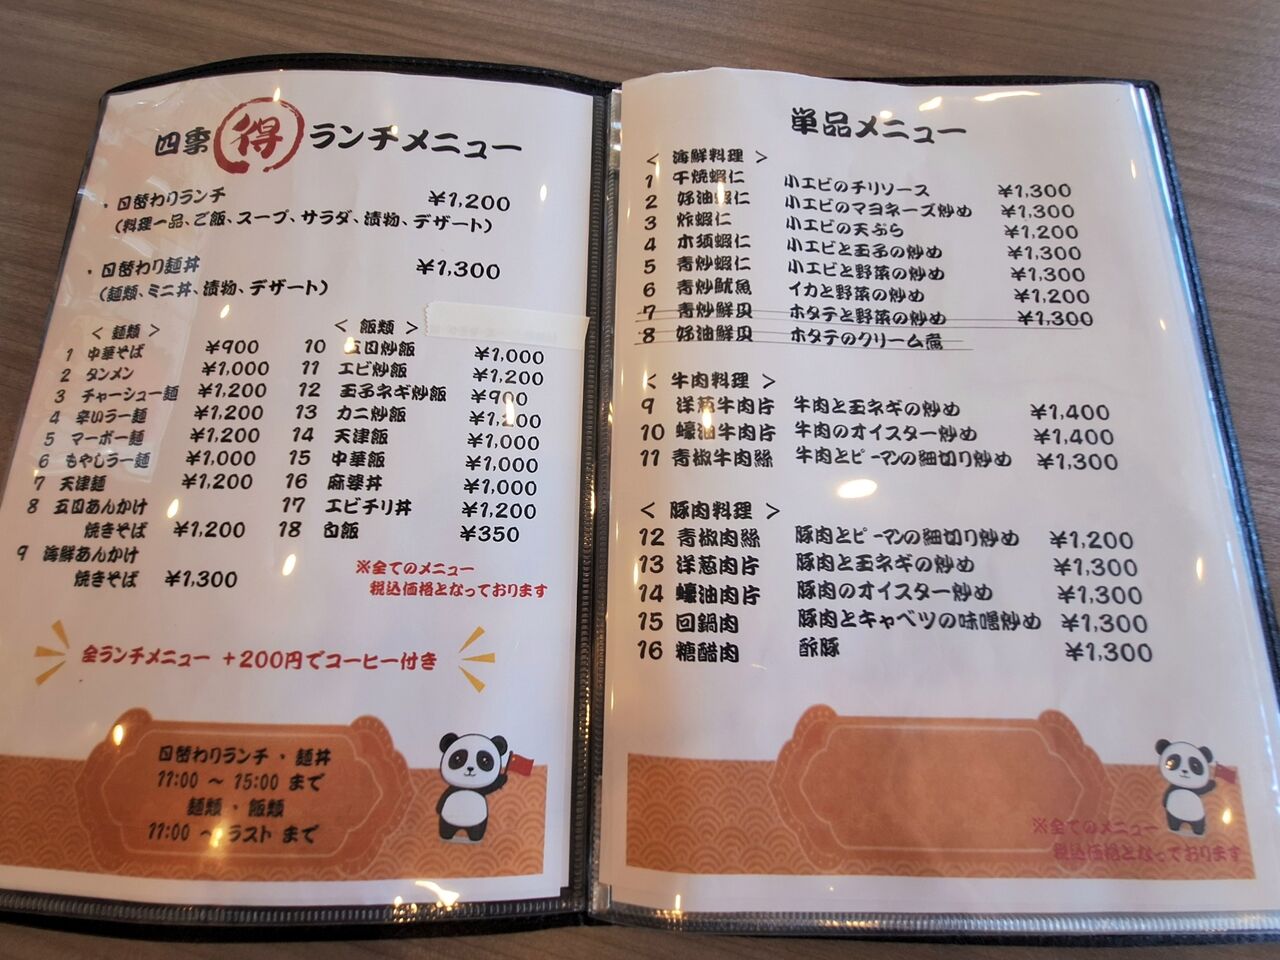 四季 得 ランチメニュー
・日替わりランチ ¥1,200
(料理一品、ご飯、スープ、サラダ、漬物、デザート)
・日替わり麺丼 ¥1,300
(麺類、ミニ丼、漬物、デザート)
< 麺類 >
1 中華そば ¥900
2 タンメン ¥1,000
3 チャーシュー麺 ¥1,200
4 辛いラー麺 ¥1,200
5 マーボー麺 ¥1,200
6 もやしラー麺 ¥1,000
7 天津麺 ¥1,200
8 五目あんかけ
焼きそば ¥1,200
9 海鮮あんかけ
焼きそば ¥1,300
< 飯類 >
10 五目炒飯 ¥1,000
11 エビ炒飯 ¥1,200
12 玉子ネギ炒飯 ¥900
13 カニ炒飯 ¥1,200
14 天津飯 ¥1,000
15 中華飯 ¥1,000
16 麻婆丼 ¥1,000
17 エビチリ丼 ¥1,200
18 白飯 ¥350
※全てのメニュー
税込価格となっております
全ランチメニュー +200円でコーヒー付き
日替わりランチ ・ 麺丼
11:00 ~ 15:00 まで
麺類 ・ 飯類
11:00 ~ ラスト まで
単品メニュー
< 海鮮料理 >
1 干焼蝦仁 小エビのチリソース ¥1,300
2 好油蝦仁 小エビのマヨネーズ炒め ¥1,300
3 炸蝦仁 小エビの天ぷら ¥1,200
4 木須蝦仁 小エビと玉子の炒め ¥1,300
5 青炒蝦仁 小エビと野菜の炒め ¥1,300
6 青炒魷魚 イカと野菜の炒め ¥1,200
7 青炒鮮貝 ホタテと野菜の炒め ¥1,300
8 好油鮮貝 ホタテのクリーム煮
< 牛肉料理 >
9 洋葱牛肉片 牛肉と玉ネギの炒め ¥1,400
10 蠔油牛肉片 牛肉のオイスター炒め ¥1,400
11 青椒牛肉絲 牛肉とピーマンの細切り炒め ¥1,300
< 豚肉料理 >
12 青椒肉絲 豚肉とピーマンの細切り炒め ¥1,200
13 洋葱肉片 豚肉と玉ネギの炒め ¥1,300
14 蠔油肉片 豚肉のオイスター炒め ¥1,300
15 回鍋肉 豚肉とキャベツの味噌炒め ¥1,300
16 糖醋肉 酢豚 ¥1,300
※全てのメニュー
税込価格となっております